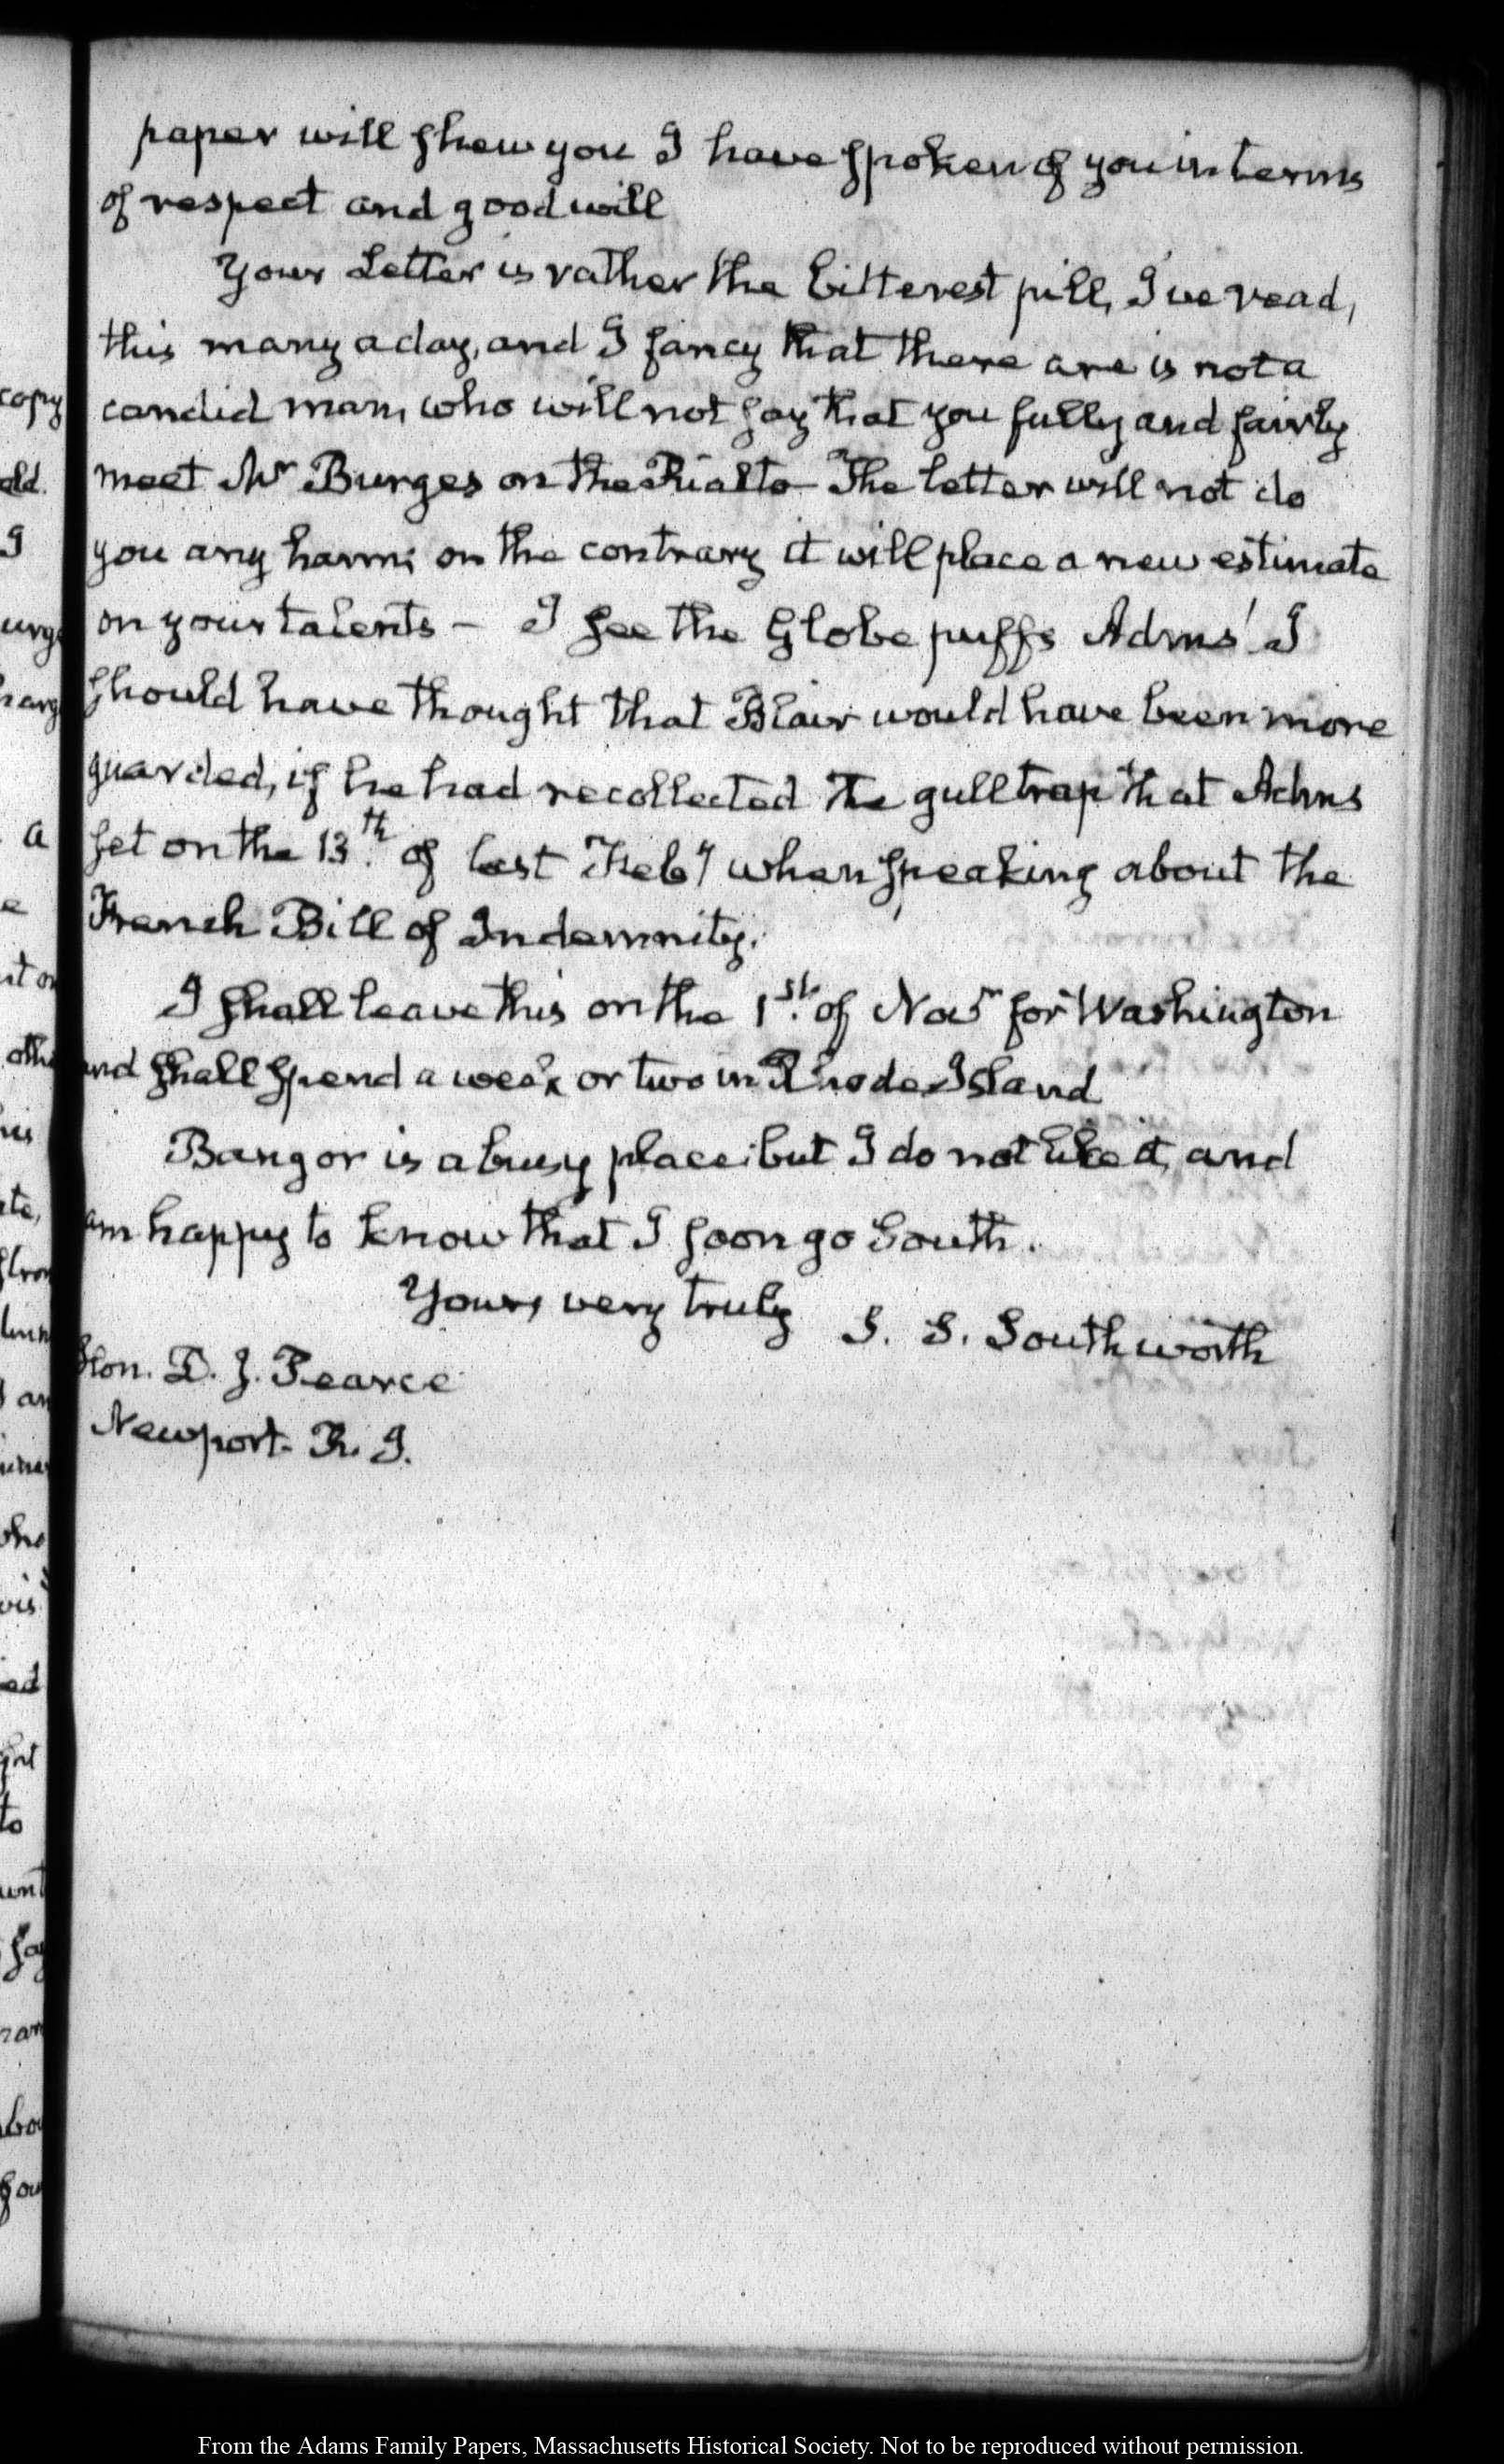 paper will shew you I have spoken of you in terms
of respect and good will
Your Letter is rather the bitterest pill, I've read,
this many a day, and I fancy that there are is not a
candid man, who will not say that you fully and fairly
meet Mr Burges on the Rialto— The letter will not do
you any harm; on the contrary it will place a new estimate
on your talents — I see the Globe puffs Adms' I
should have thought that Blair would have been more
guarded, if he had recollected the gull trap that Adms
set on the 13th. of last Feby when speaking about the
French Bill of Indemnity.
I shall leave this on the 1st. of Novr for Washington
and shall spend a week or two in Rhode Island
Bangor is a busy place; but I do not like it, and
am happy to know that I soon go South.
Yours very truly S. S. Southworth
Hon. D. J. Pearce
Newport. R. I.
From the Adams Family Papers, Massachusetts Historical Society. Not to be reproduced without permission.